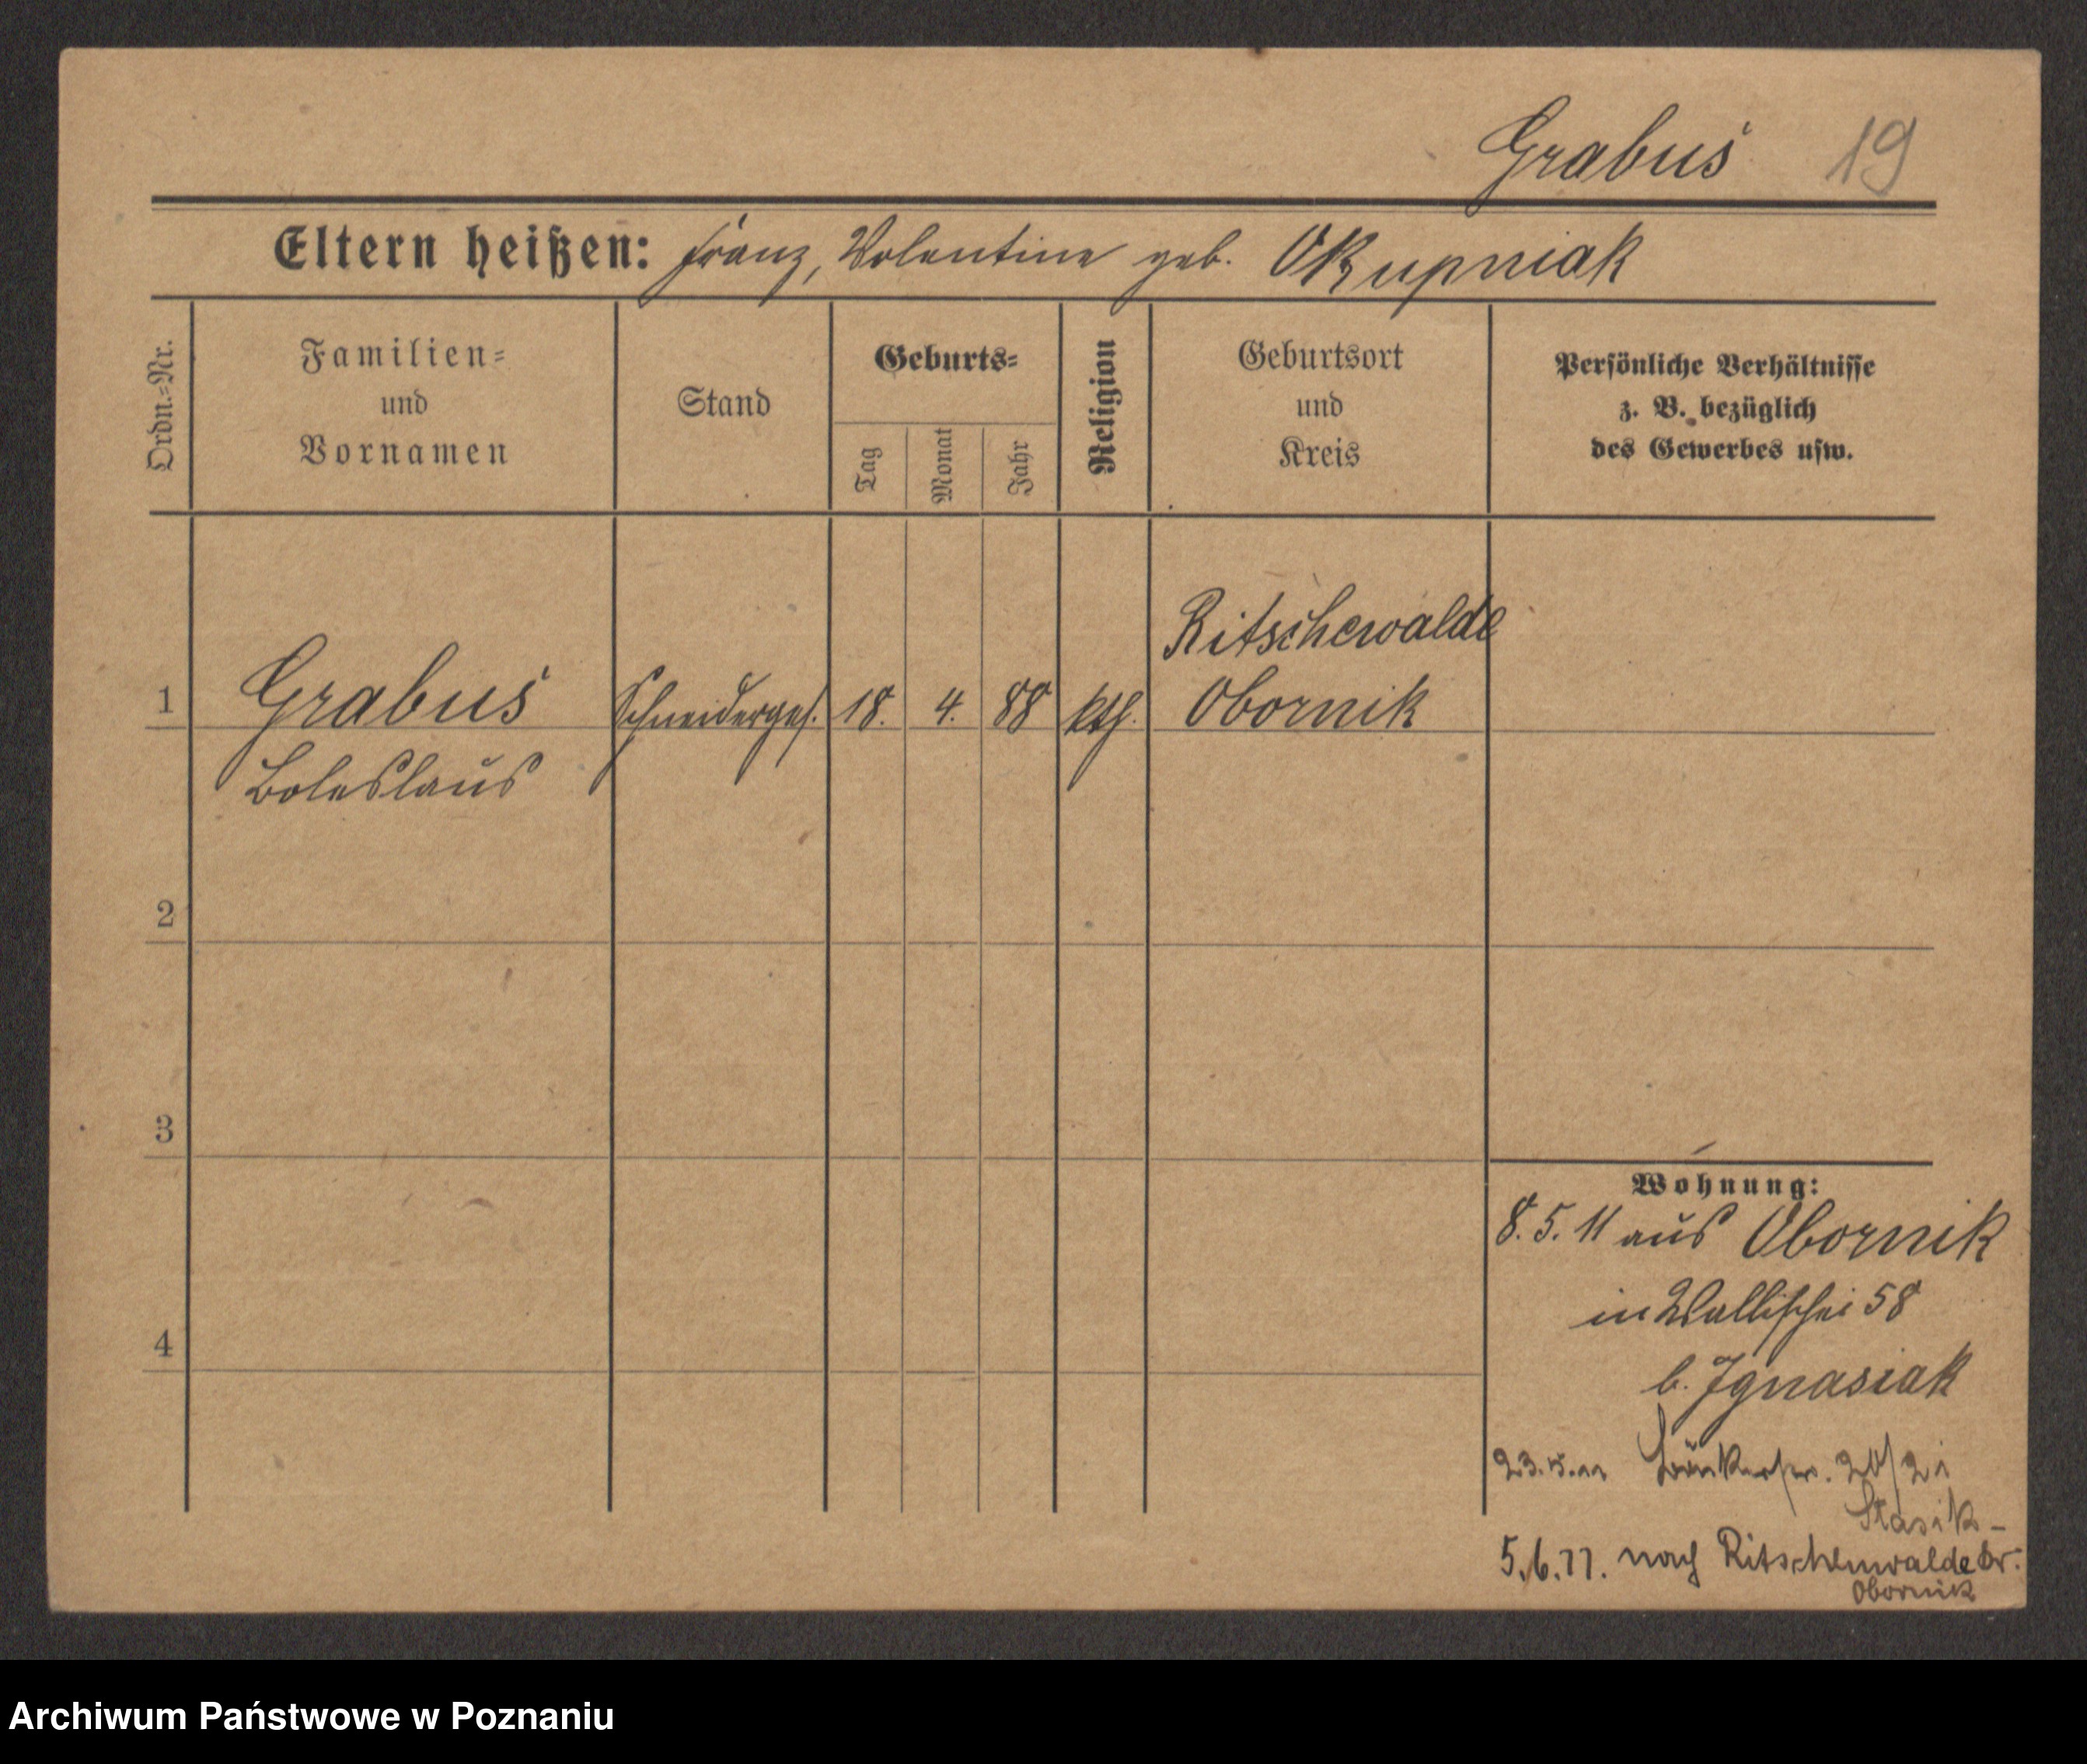 Grabus 19
Eltern heißen: Franz, Valentine geb. Okupniak
Ordn.=Nr.
Familien=
und
Vornamen
Stand
Geburts=
Tag
Monat
Jahr
Religion
Geburtsort
und
Kreis
Persönliche Verhältnisse
z. B. bezüglich
des Gewerbes usw.
Ritschewalde
1 Grabus Schneiderges. 18. 4. 88 kth. Obornik
Boleslaus
2
3
4
Wohnung:
8.5.11 aus Obornik
in Wallischei 58
b. Ignasiak
23.5.11 20/21
Stasik-
5.6.11. nach Ritschenwalde Kr.
Obornik
Archiwum Państwowe w Poznaniu